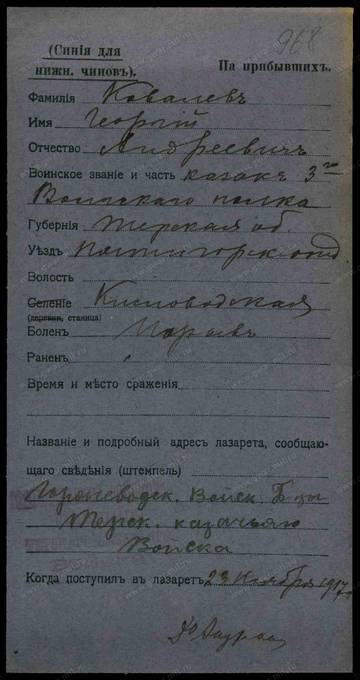 968
(Синія для
нижн. чиновъ).
На прибывшихъ.
Фамилія Ковалевъ
Имя Георгій
Отчество Андреевичъ
Воинское званіе и часть казакъ 3го
полка
Губернія Терская об.
Уѣздъ
Волость
Селеніе Кисловодская
(деревня, станица)
Боленъ
Раненъ
Время и мѣсто сраженія
Названіе и подробный адресъ лазарета, сообщаю-
щаго свѣдѣнія (штемпель)
Войск. Б-цы
Терск. казачьяго
Войска
Когда поступилъ въ лазаретъ 23 Ноября 1917 г.